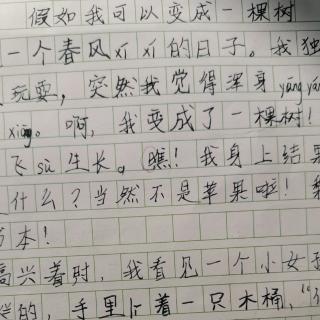 假如我可以变成一棵树
一个春风xí xí的日子。我独
玩耍，突然我觉得浑身yǎng yǎn
xiǎng。啊，我变成了一棵树！
飞sù生长。瞧！我身上结
什么？当然不是苹果啦！
书本！
高兴着时，我看见一个小女
的，手里拎着一只木桶，“